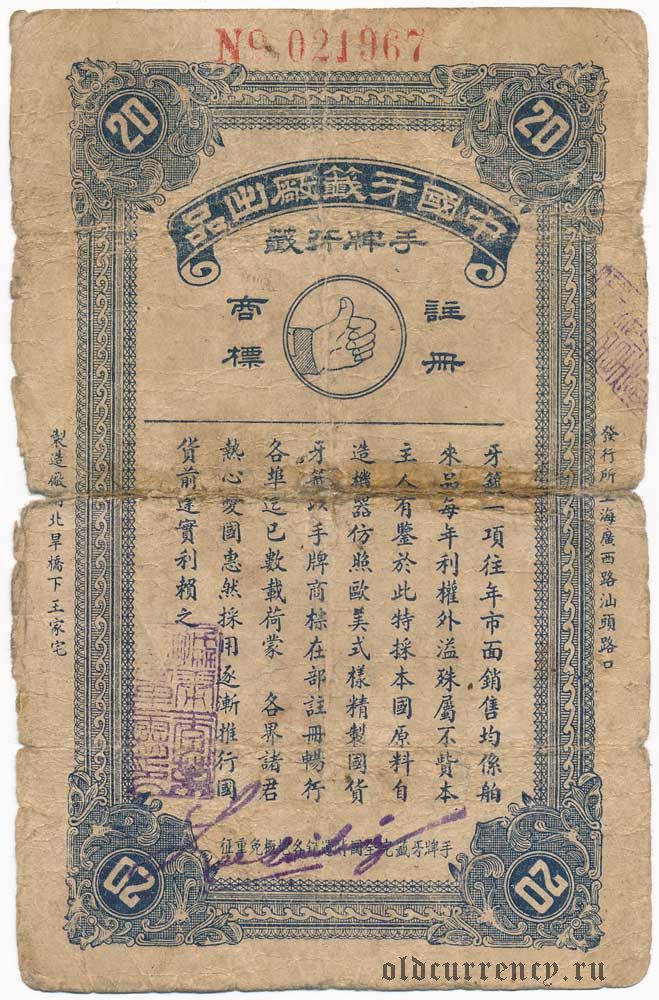 No 021967
20
20
中國牙籤厰出品
手牌牙籤
註冊
商標
牙籤一項往年市面銷售均係舶
來品每年利權外溢殊屬不貲本
主人有鑒於此特採本國原料自
造機器仿照歐美式樣精製國貨
牙籤以手牌商標在部註冊暢行
各埠迄已數載荷蒙 各界諸君
熱心愛國惠然採用逐漸推行國
貨前途實利賴之
發行所上海廣西路汕頭路口
製造廠 北旱橋下王家宅
手牌牙籤 全國 各 概免重征
20
20
oldcurrency.ru